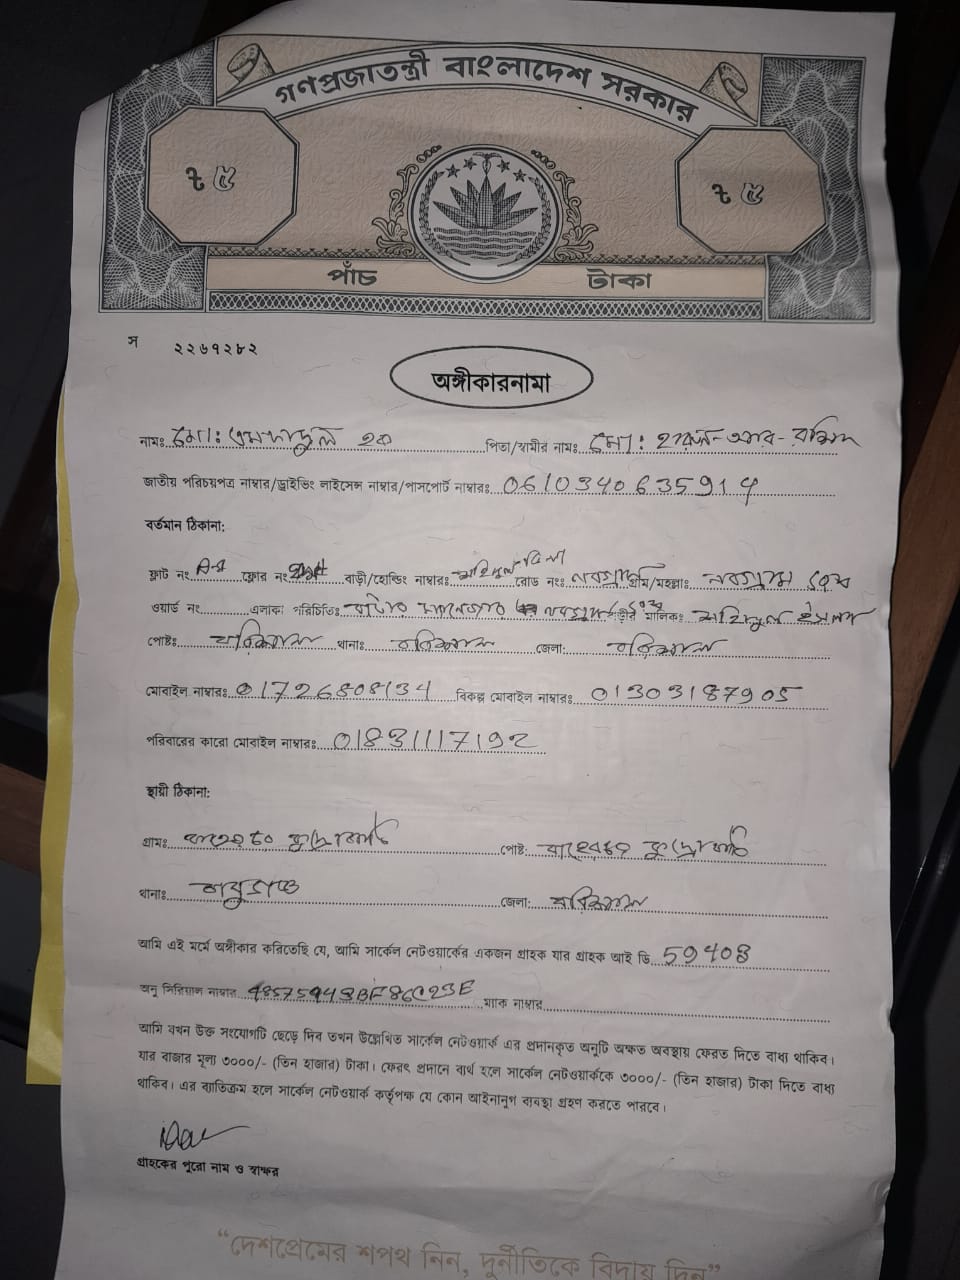 গণপ্রজাতন্ত্রী বাংলাদেশ সরকার
৳ ৫ ৳ ৫
পাঁচ টাকা
স ২২৬৭২৮২
অঙ্গীকারনামা
নামঃ মোঃ এমদাদুল হক পিতা/স্বামীর নামঃ মোঃ হারুন-অর-রশিদ
জাতীয় পরিচয়পত্র নাম্বার/ড্রাইভিং লাইসেন্স নাম্বার/পাসপোর্ট নাম্বারঃ 0610340635914
বর্তমান ঠিকানা:
ফ্লাট নং ফ্লোর নং বাড়ী/হোল্ডিং নাম্বারঃ রোড নং নবগ্রাম গ্রাম/মহল্লা: নবগ্রাম রোড
ওয়ার্ড নং এলাকা পরিচিতিঃ বাড়ীর মালিকঃ শহিদুল ইসলাম
পোষ্টঃ বরিশাল থানাঃ বরিশাল জেলা: বরিশাল
মোবাইল নাম্বারঃ 01726808134 বিকল্প মোবাইল নাম্বারঃ 01303187905
পরিবারের কারো মোবাইল নাম্বারঃ 01831117192
স্থায়ী ঠিকানা:
গ্রামঃ পোষ্ট:
থানাঃ বাবুগঞ্জ জেলা: বরিশাল
আমি এই মর্মে অঙ্গীকার করিতেছি যে, আমি সার্কেল নেটওয়ার্কের একজন গ্রাহক যার গ্রাহক আই ডি 59408
অনু সিরিয়াল নাম্বার 485759438BF86C23E ম্যাক নাম্বার
আমি যখন উক্ত সংযোগটি ছেড়ে দিব তখন উল্লেখিত সার্কেল নেটওয়ার্ক এর প্রদানকৃত অনুটি অক্ষত অবস্থায় ফেরত দিতে বাধ্য থাকিব।
যার বাজার মূল্য ৩০০০/- (তিন হাজার) টাকা। ফেরৎ প্রদানে ব্যর্থ হলে সার্কেল নেটওয়ার্ককে ৩০০০/- (তিন হাজার) টাকা দিতে বাধ্য
থাকিব। এর ব্যতিক্রম হলে সার্কেল নেটওয়ার্ক কর্তৃপক্ষ যে কোন আইনানুগ ব্যবস্থা গ্রহণ করতে পারবে।
গ্রাহকের পুরো নাম ও স্বাক্ষর
“দেশপ্রেমের শপথ নিন, দুর্নীতিকে বিদায় দিন”